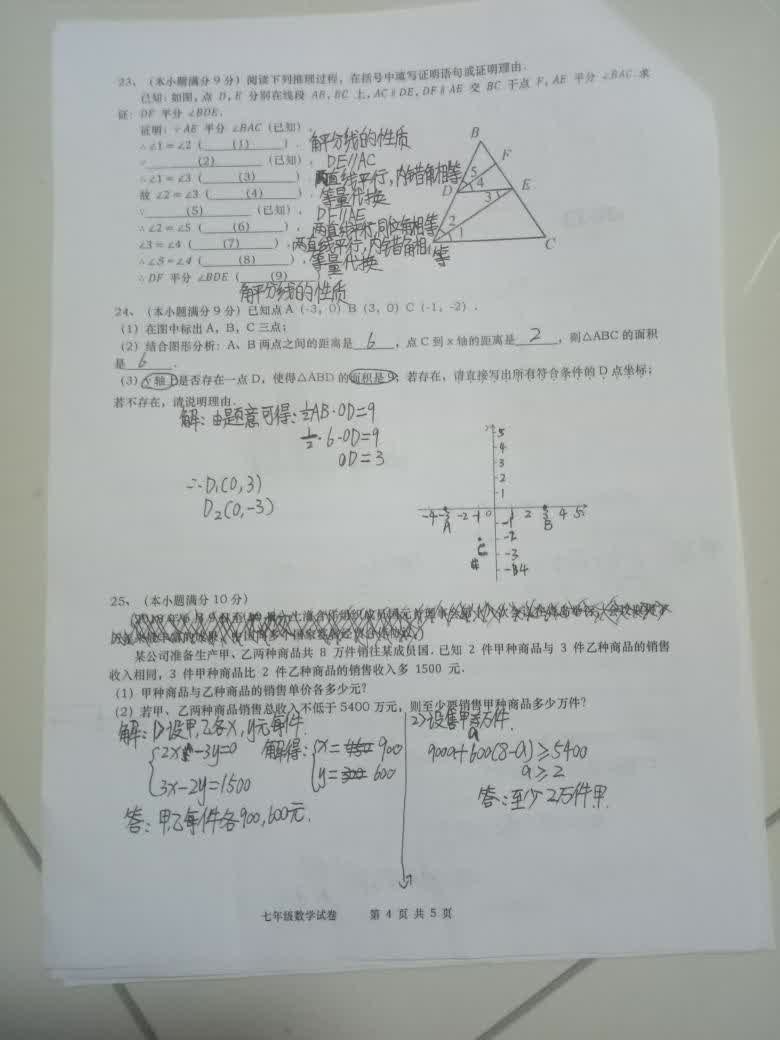 23、（本小题满分 9 分）阅读下列推理过程，在括号中填写证明语句或证明理由.
已知：如图，点 D，E 分别在线段 AB，BC 上，AC∥DE，DF∥AE 交 BC 于点 F，AE 平分 ∠BAC. 求
证：DF 平分 ∠BDE.
证明：∵AE 平分 ∠BAC（已知），
∴∠1＝∠2（ (1) ）. 角平分线的性质
∵ (2) （已知）， DE//AC
∴∠1＝∠3（ (3) ） 两直线平行，内错角相等
故 ∠2＝∠3（ (4) ） 等量代换
∵ (5) （已知）， DF//AE
∴∠2＝∠5（ (6) ）， 两直线平行，同位角相等
∠3＝∠4（ (7) ）， 两直线平行，内错角相等
∴∠5＝∠4（ (8) ）， 等量代换
∴DF 平分 ∠BDE（ (9) ）
角平分线的性质
B
F
5
4
D
E
3
2
1
C
24、（本小题满分 9 分）已知点 A（-3，0）B（3，0）C（-1，-2）.
（1）在图中标出 A，B，C 三点；
（2）结合图形分析：A、B 两点之间的距离是 6 ，点 C 到 x 轴的距离是 2 ，则△ABC 的面积
是 6 .
（3）y 轴上是否存在一点 D，使得△ABD 的面积是 9；若存在，请直接写出所有符合条件的 D 点坐标；
若不存在，请说明理由.
解：由题意可得：½AB·OD=9
½·6·OD=9
OD=3
∴D₁(0,3)
D₂(0,-3)
5
4
3
2
1
-4 -3 -2 -1 0 1 2 3 4 5
A B
-1
-2
C
-3
-4
25、（本小题满分 10 分）
某公司准备生产甲、乙两种商品共 8 万件销往某成员国. 已知 2 件甲种商品与 3 件乙种商品的销售
收入相同，3 件甲种商品比 2 件乙种商品的销售收入多 1500 元.
（1）甲种商品与乙种商品的销售单价各多少元？
（2）若甲、乙两种商品销售总收入不低于 5400 万元，则至少要销售甲种商品多少万件？
解：1)设甲,乙各x,y元每件.
2x-3y=0 解得： x=900
3x-2y=1500 y=600
答：甲乙每件各900,600元.
2)设售甲a万件.
900a+600(8-a)≥5400
a≥2
答：至少2万件甲.
七年级数学试卷 第 4 页 共 5 页